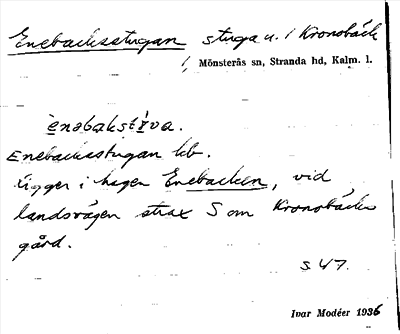 Enebacksstugan stuga u. / Kronobäck
i, Mönsterås sn, Stranda hd, Kalm. l.
ènəbakstʉva.
Enebacksstugan kb.
Ligger i hagen Enebacken, vid
landsvägen strax S om Kronobäcks
gård.
S 47.
Ivar Modéer 1936